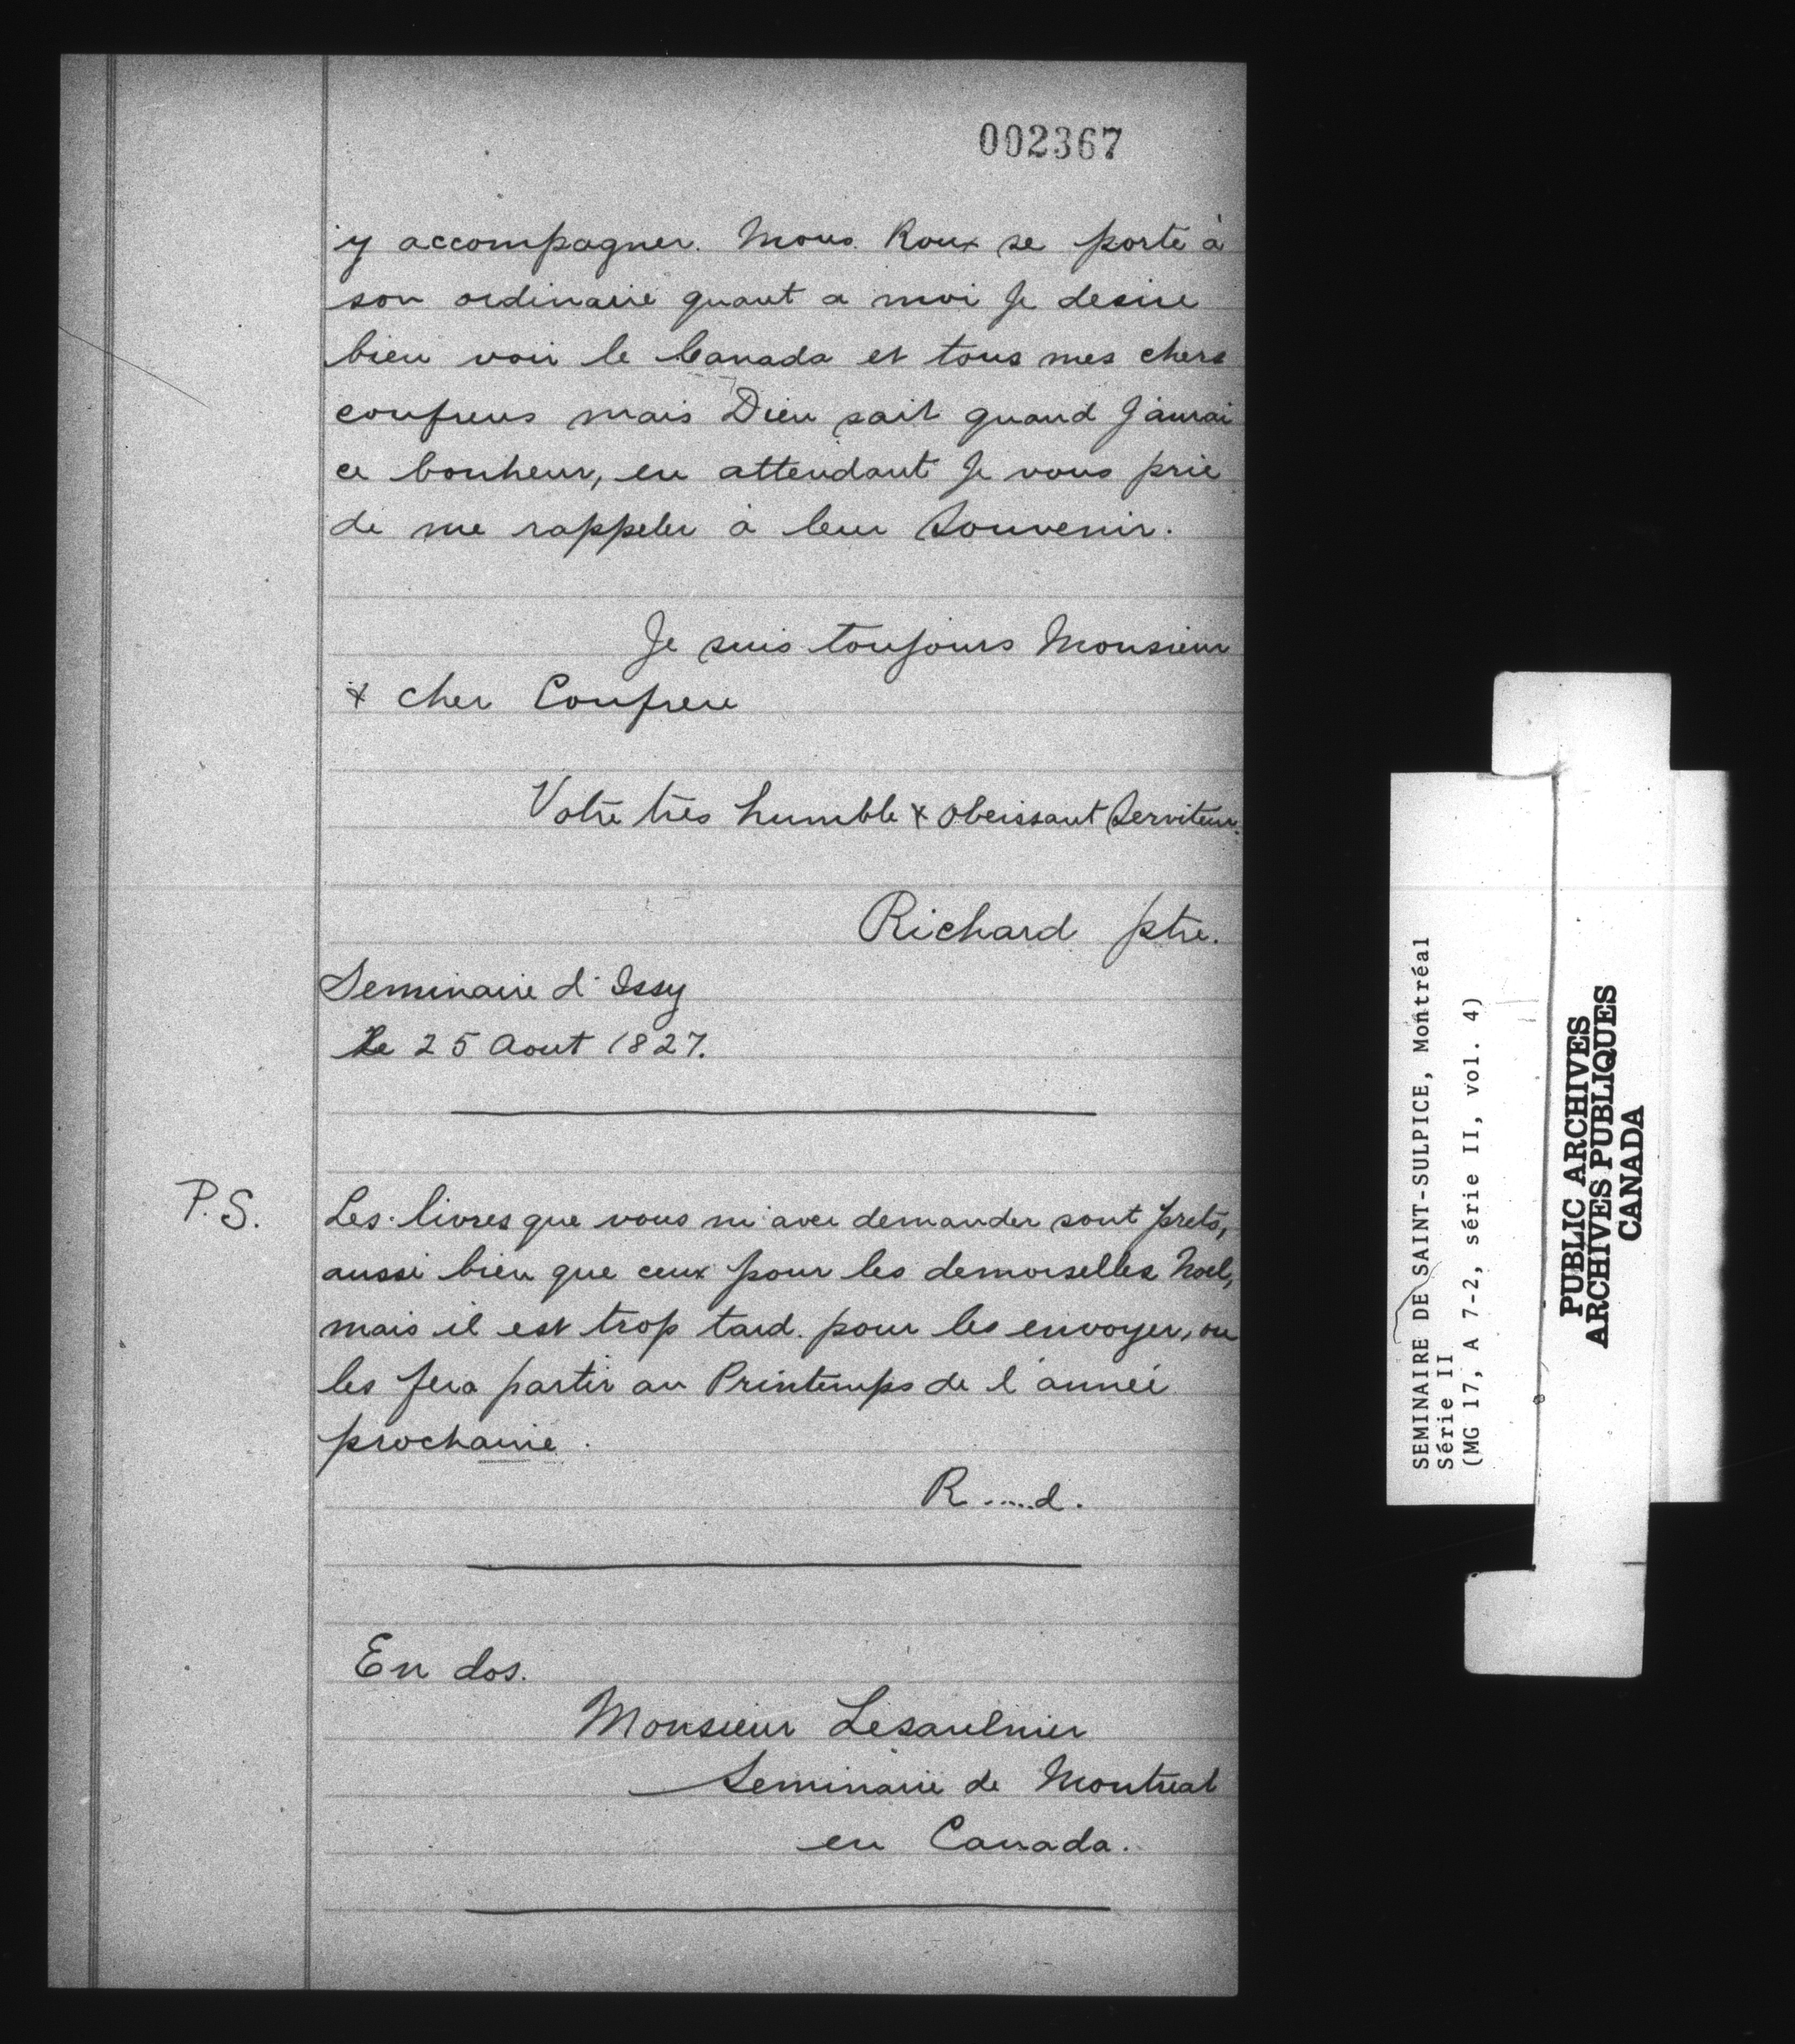 002367
y accompagner. Mons. Roux se porte à
son ordinaire quant a moi Je desire
bien voir le Canada et tous mes chers
confreres mais Dieu sait quand J'aurai
ce bonheur, en attendant Je vous prie
de me rappeler à leur Souvenir.
Je suis toujours Monsieur
& cher Confrere
Votre très humble & obeissant Serviteur.
Richard ptre.
Seminaire d'Issy
Le 25 Aout 1827.
P.S. Les livres que vous m'avez demander sont prets,
aussi bien que ceux pour les demoiselles Noel,
mais il est trop tard. pour les envoyer, on
les fera partir au Printemps de l'année
prochaine.
R.....d.
En dos.
Monsieur Lesaulnier
Seminaire de Montreal
en Canada.
SEMINAIRE DE SAINT-SULPICE, Montréal
Série II
(MG 17, A 7-2, série II, vol. 4)
PUBLIC ARCHIVES
ARCHIVES PUBLIQUES
CANADA